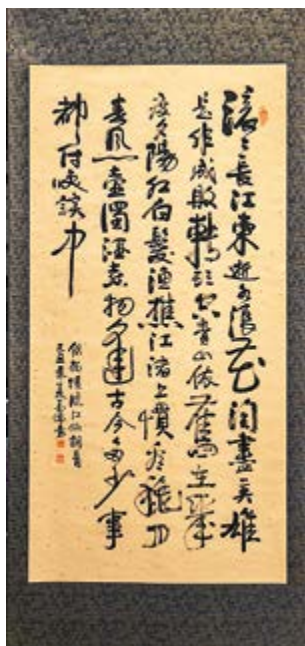 滾滾長江東逝水浪花淘盡英雄
是非成敗轉頭空青山依舊在幾
度夕陽紅白髮漁樵江渚上慣看秋月
春風一壺濁酒喜相逢古今多少事
都付笑談中
楊慎臨江仙詞